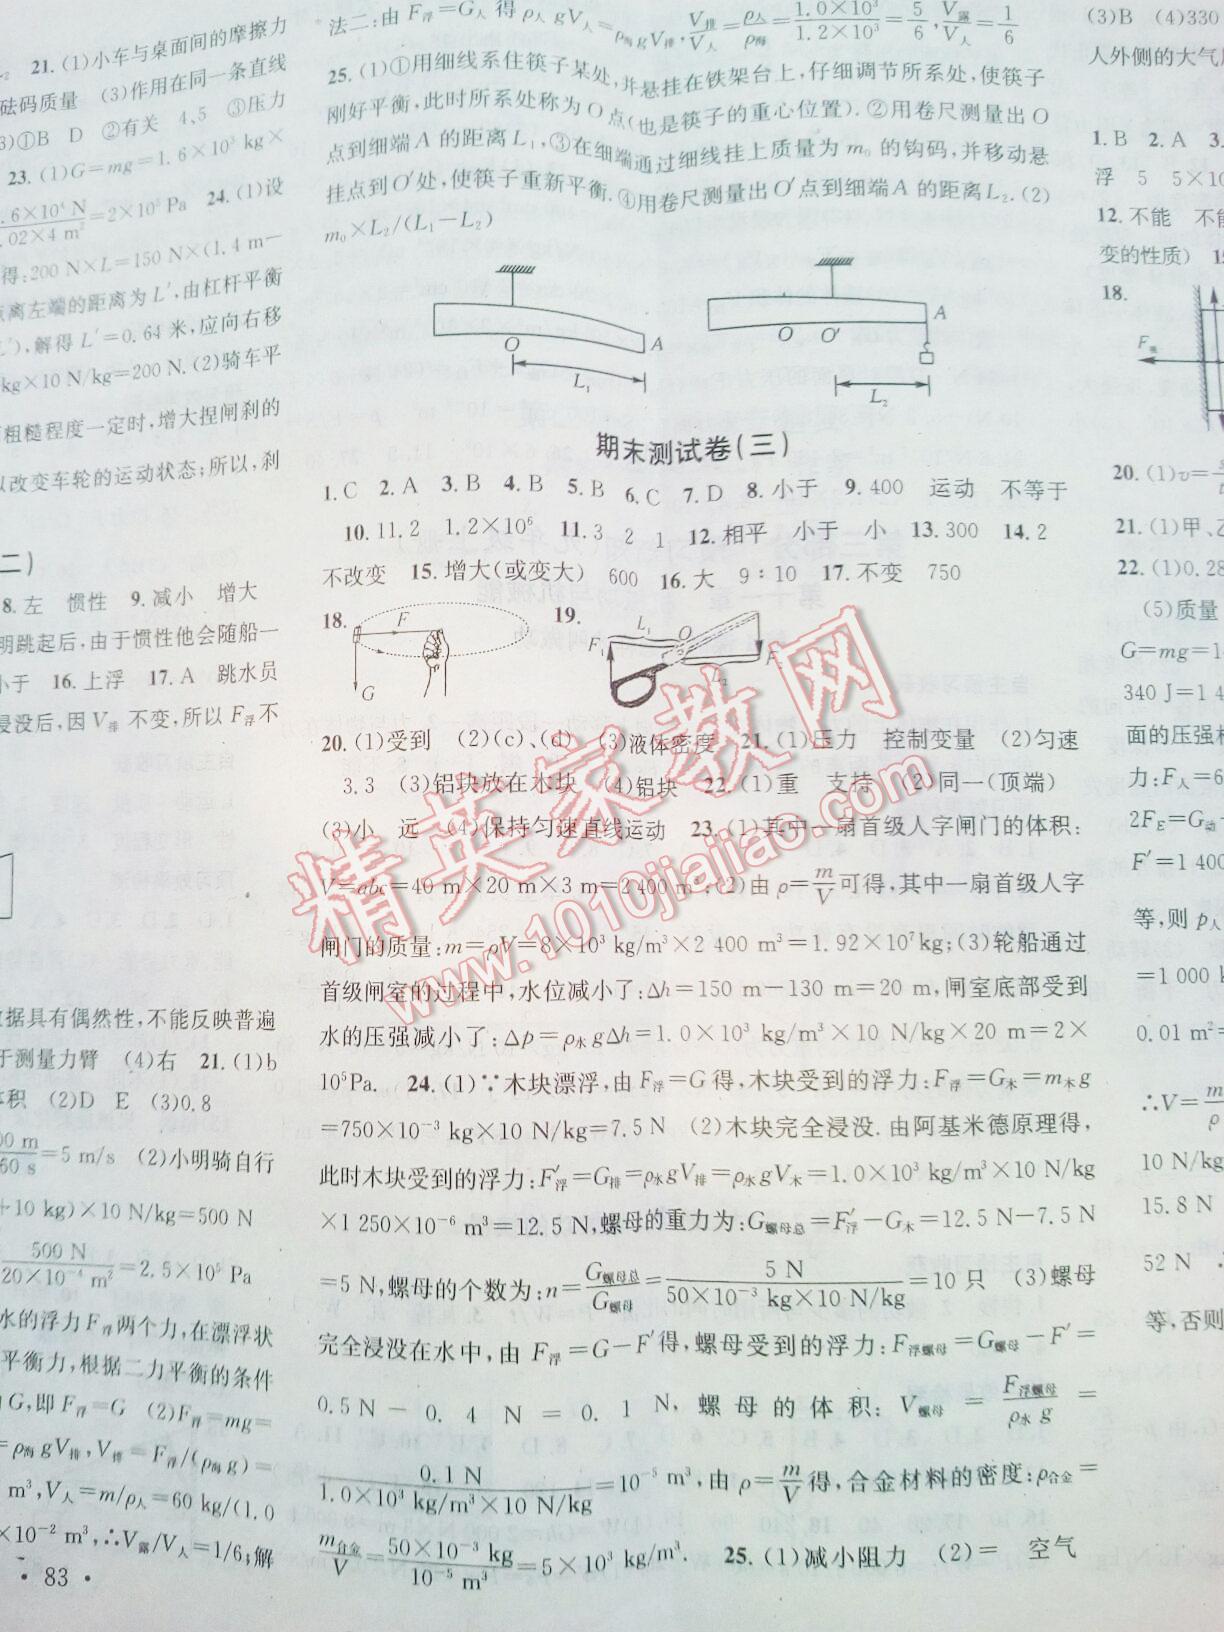 ₂ 21.(1)小车与桌面间的摩擦力
砝码质量 (3)作用在同一条直线
3)①B D ②有关 4、5 ③压力
23.(1)G=mg=1.6×10³ kg×
.6×10⁴ N/.02×4 m²=2×10⁵ Pa 24.(1)设
得:200 N×L=150 N×(1.4 m-
点离左端的距离为L′,由杠杆平衡
L′),解得L′=0.64米,应向右移
kg×10 N/kg=200 N.(2)骑车平
粗糙程度一定时,增大捏闸刹的
以改变车轮的运动状态;所以,刹
二)
8.左 惯性 9.减小 增大
明跳起后,由于惯性他会随船一
小于 16.上浮 17.A 跳水员
浸没后,因V排不变,所以F浮不
数据具有偶然性,不能反映普遍
于测量力臂 (4)右 21.(1)b
体积 (2)D E (3)0.8
00 m/60 s=5 m/s (2)小明骑自行
+10 kg)×10 N/kg=500 N
500 N/20×10⁻⁴ m²=2.5×10⁵ Pa
水的浮力F浮两个力,在漂浮状
平衡力,根据二力平衡的条件
G,即F浮=G (2)F浮=mg=
=ρ海gV排,V排=F浮/(ρ海g)=
m³,V人=m/ρ人=60 kg/(1.0
×10⁻² m³,∴V露/V人=1/6;解
· 83 ·
法二:由F浮=G人得ρ人gV人=ρ海gV排,V排/V人=ρ人/ρ海=1.0×10³/1.2×10³=5/6,V露/V人=1/6
25.(1)①用细线系住筷子某处,并悬挂在铁架台上,仔细调节所系处,使筷子
刚好平衡,此时所系处称为O点(也是筷子的重心位置).②用卷尺测量出O
点到细端A的距离L₁,③在细端通过细线挂上质量为m₀的钩码,并移动悬
挂点到O′处,使筷子重新平衡.④用卷尺测量出O′点到细端A的距离L₂.(2)
m₀×L₂/(L₁-L₂)
O A L₁
O O′ A L₂
期末测试卷(三)
1.C 2.A 3.B 4.B 5.B 6.C 7.D 8.小于 9.400 运动 不等于
10.11.2 1.2×10⁶ 11.3 2 1 12.相平 小于 小 13.300 14.2
不改变 15.增大(或变大) 600 16.大 9∶10 17.不变 750
18. F G 19. F₁ L₁ O F₂ L₂
20.(1)受到 (2)(c)、(d) (3)液体密度 21.(1)压力 控制变量 (2)匀速
3.3 (3)铝块放在木块 (4)铝块 22.(1)重 支持 (2)同一(顶端)
(3)小 远 (4)保持匀速直线运动 23.(1)其中一扇首级人字闸门的体积:
V=abc=40 m×20 m×3 m=2 400 m³;(2)由ρ=m/V可得,其中一扇首级人字
闸门的质量:m=ρV=8×10³ kg/m³×2 400 m³=1.92×10⁷kg;(3)轮船通过
首级闸室的过程中,水位减小了:Δh=150 m-130 m=20 m,闸室底部受到
水的压强减小了:Δp=ρ水gΔh=1.0×10³ kg/m³×10 N/kg×20 m=2×
10⁵Pa. 24.(1)∵木块漂浮,由F浮=G得,木块受到的浮力:F浮=G木=m木g
=750×10⁻³ kg×10 N/kg=7.5 N (2)木块完全浸没.由阿基米德原理得,
此时木块受到的浮力:F′浮=G排=ρ水gV排=ρ水gV木=1.0×10³ kg/m³×10 N/kg
×1 250×10⁻⁶ m³=12.5 N,螺母的重力为:G螺母总=F′浮-G木=12.5 N-7.5 N
=5 N,螺母的个数为:n=G螺母总/G螺母=5 N/50×10⁻³ kg×10 N/kg=10只 (3)螺母
完全浸没在水中,由F浮=G-F′得,螺母受到的浮力:F浮螺母=G螺母-F′=
0.5N-0.4N=0.1N,螺母的体积:V螺母=F浮螺母/ρ水g=
0.1 N/1.0×10³ kg/m³×10 N/kg=10⁻⁵ m³,由ρ=m/V得,合金材料的密度:ρ合金=
m合金/V=50×10⁻³ kg/10⁻⁵ m³=5×10³ kg/m³. 25.(1)减小阻力 (2)= 空气
(3)B (4)330
人外侧的大气
1.B 2.A 3.
浮 5 5×10
12.不能 不能
变的性质)
18.
20.(1)v=
21.(1)甲、乙
22.(1)0.28
(5)质量
G=mg=1
340 J=1 4
面的压强
力:F人=6
F′=1 400
等,则p人
=1 000 k
0.01 m²=
∴V=m/ρ
10 N/kg
15.8 N
52 N
等,否则
精英家教网
www.1010jiajiao.com